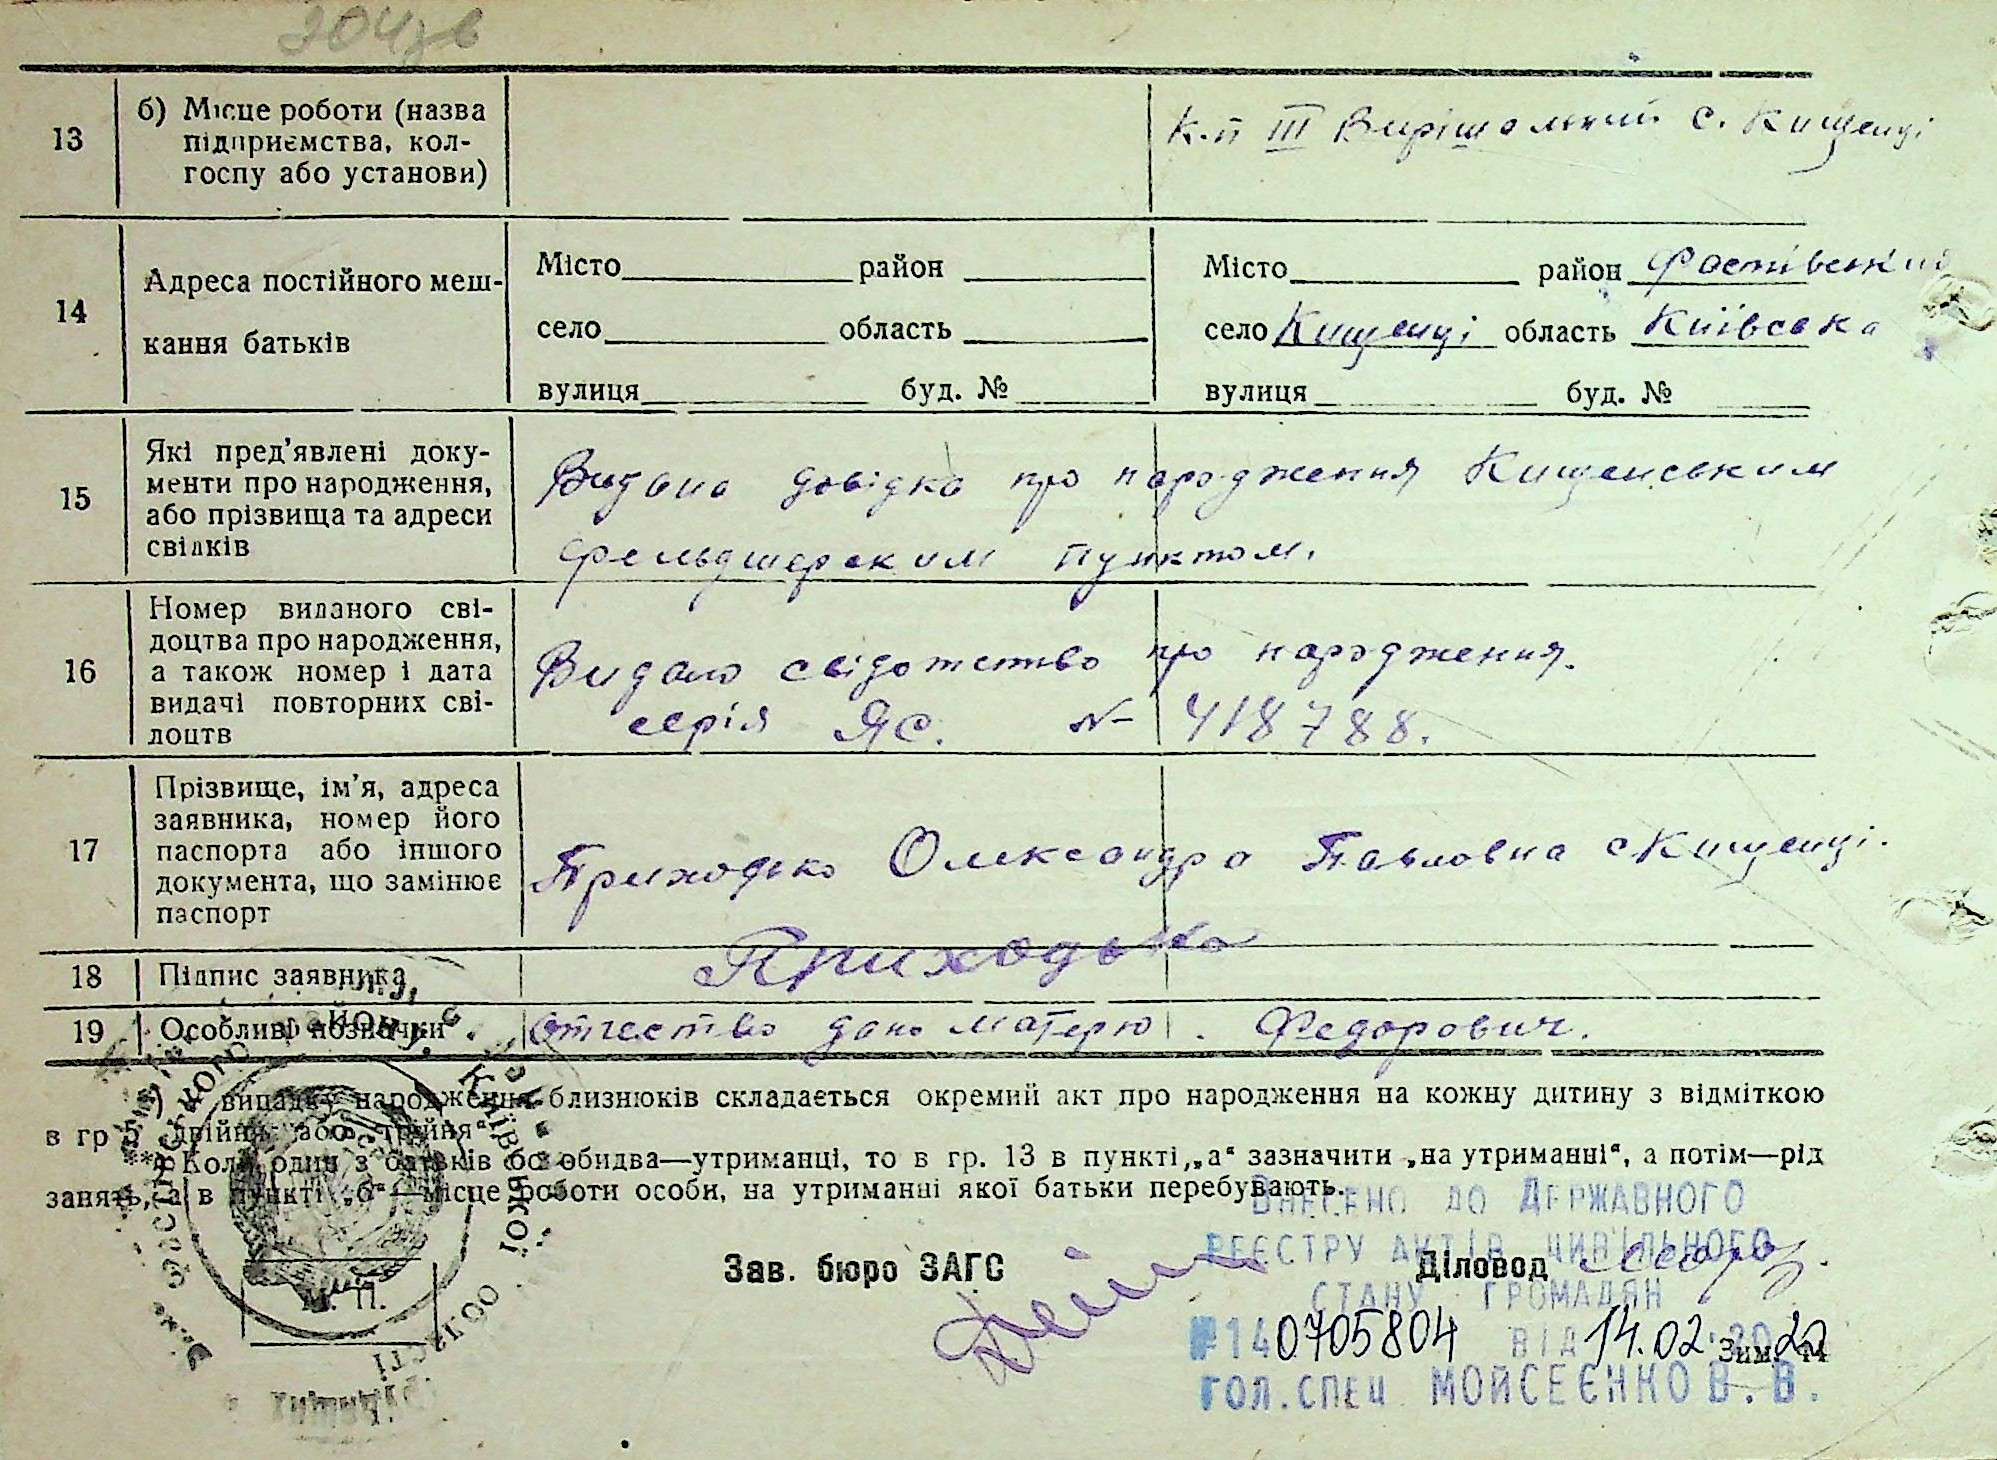 204зв
13 б) Місце роботи (назва підприємства, колгоспу або установи)
К-п III Вирішальний с. Кищенці
14 Адреса постійного мешкання батьків
Місто район
село область
вулиця буд. №
Місто район Фастівський
село Кищенці область Київська
вулиця буд. №
15 Які пред'явлені документи про народження, або прізвища та адреси свідків
Видана довідка про народження Кищенським
фельдшерским пунктом.
16 Номер виданого свідоцтва про народження, а також номер і дата видачі повторних свідоцтв
Видано свідотство про народження.
серія ЯС. № 418788.
17 Прізвище, ім'я, адреса заявника, номер його паспорта або іншого документа, що замінює паспорт
Приходько Олександра Павловна с Кищенці.
18 Підпис заявника
Приходько
19 Особливі позначки
Отчество дано матерю. Федорович.
*) випадку народження близнюків складається окремий акт про народження на кожну дитину з відміткою
в гр 5 „двійня“ або „трійня“
**) Коли один з батьків або обидва—утриманці, то в гр. 13 в пункті „а“ зазначити „на утриманні“, а потім—рід
занять, а в пункті „б“—місце роботи особи, на утриманні якої батьки перебувають.
Зав. бюро ЗАГС
Діловод
М. П.
Внесено до Державного
реєстру актів цивільного
стану громадян
№ 140705804 від 14.02.2022
гол. спец Мойсеєнко В. В.